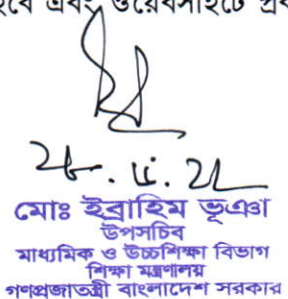 হবে এবং ওয়েবসাইটে প্রক
মোঃ ইব্রাহিম ভূঞা
উপসচিব
মাধ্যমিক ও উচ্চশিক্ষা বিভাগ
শিক্ষা মন্ত্রণালয়
গণপ্রজাতন্ত্রী বাংলাদেশ সরকার